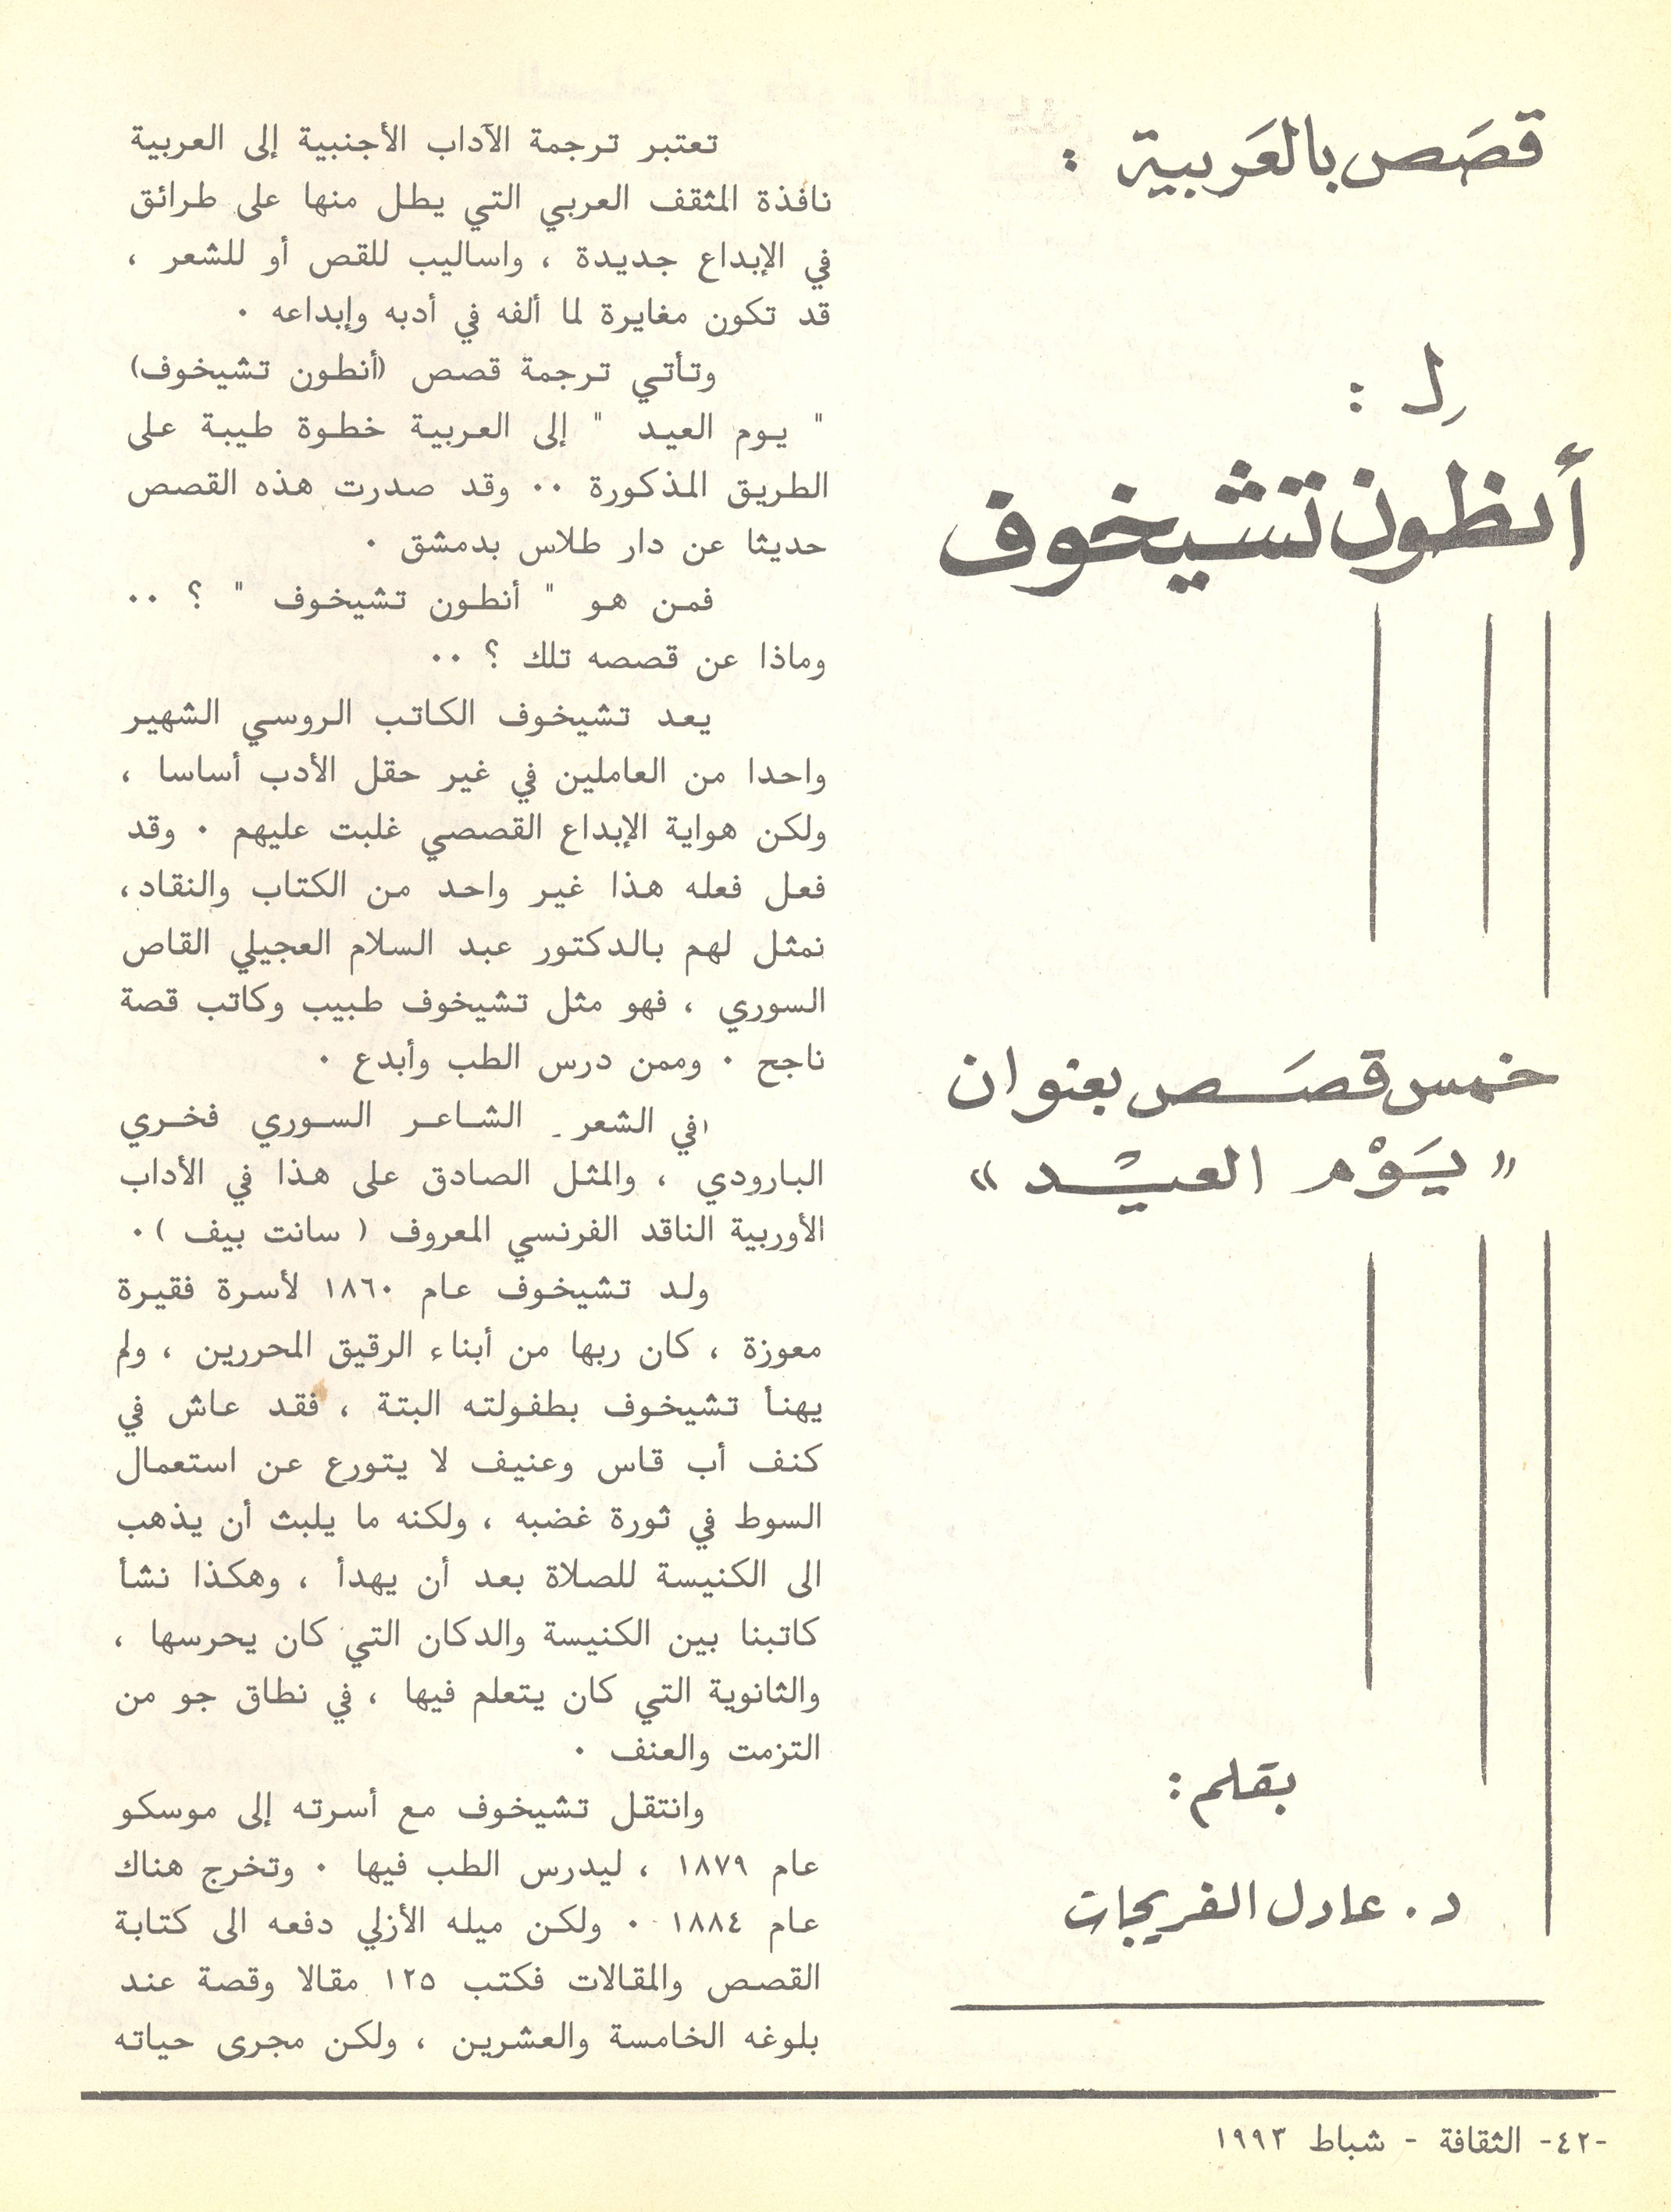 قصَص بالعَربية :
لـ :
أنطون تشيخوف
خمس قصَص بعنوان
« يَوْم العيْد »
بقلم :
د. عادل الفريجات
تعتبر ترجمة الآداب الأجنبية إلى العربية
نافذة المثقف العربي التي يطل منها على طرائق
في الإبداع جديدة ، واساليب للقص أو للشعر ،
قد تكون مغايرة لما ألفه في أدبه وإبداعه .
وتأتي ترجمة قصص (أنطون تشيخوف)
" يوم العيد " إلى العربية خطوة طيبة على
الطريق المذكورة .. وقد صدرت هذه القصص
حديثا عن دار طلاس بدمشق .
فمن هو " أنطون تشيخوف " ؟ ..
وماذا عن قصصه تلك ؟ ..
يعد تشيخوف الكاتب الروسي الشهير
واحدا من العاملين في غير حقل الأدب أساسا ،
ولكن هواية الإبداع القصصي غلبت عليهم . وقد
فعل فعله هذا غير واحد من الكتاب والنقاد ،
نمثل لهم بالدكتور عبد السلام العجيلي القاص
السوري ، فهو مثل تشيخوف طبيب وكاتب قصة
ناجح . وممن درس الطب وأبدع .
في الشعر - الشاعر السوري فخري
البارودي ، والمثل الصادق على هذا في الأداب
الأوربية الناقد الفرنسي المعروف ( سانت بيف ) .
ولد تشيخوف عام ١٨٦٠ لأسرة فقيرة
معوزة ، كان ربها من أبناء الرقيق المحررين ، ولم
يهنأ تشيخوف بطفولته البتة ، فقد عاش في
كنف أب قاس وعنيف لا يتورع عن استعمال
السوط في ثورة غضبه ، ولكنه ما يلبث أن يذهب
الى الكنيسة للصلاة بعد أن يهدأ ، وهكذا نشأ
كاتبنا بين الكنيسة والدكان التي كان يحرسها ،
والثانوية التي كان يتعلم فيها ، في نطاق جو من
التزمت والعنف .
وانتقل تشيخوف مع أسرته إلى موسكو
عام ١٨٧٩ ، ليدرس الطب فيها . وتخرج هناك
عام ١٨٨٤ . ولكن ميله الأزلي دفعه الى كتابة
القصص والمقالات فكتب ١٢٥ مقالا وقصة عند
بلوغه الخامسة والعشرين ، ولكن مجرى حياته
-٤٢- الثقافة - شباط ١٩٩٣